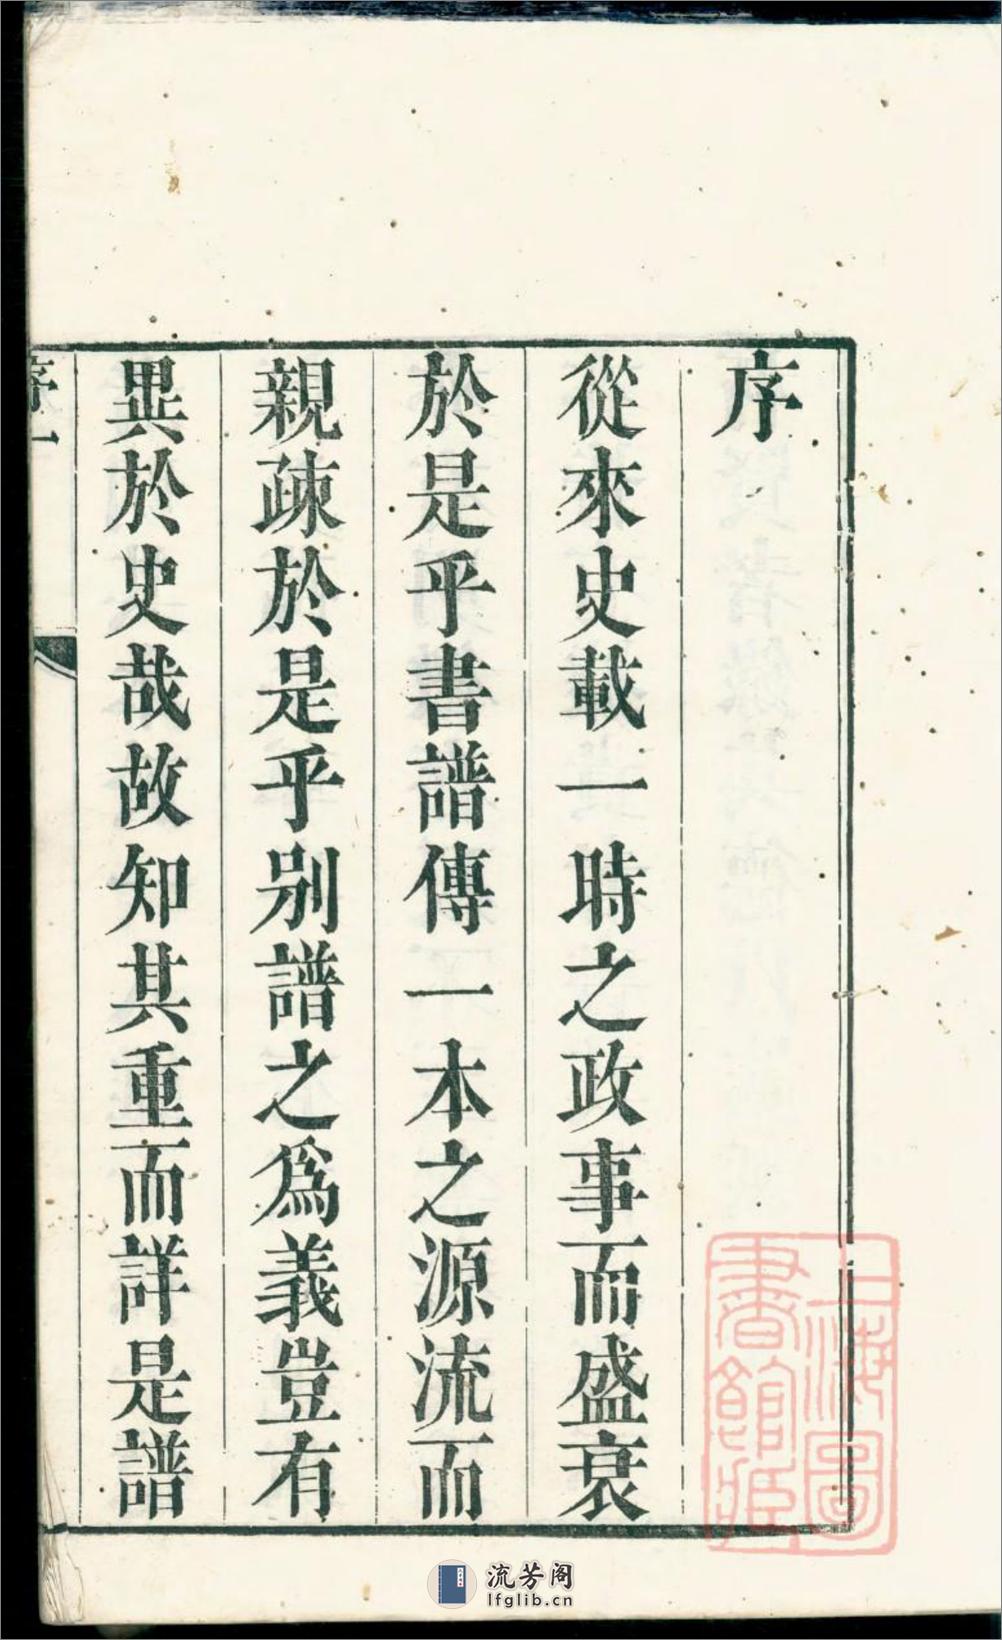 序
從來史載一時之政事而盛衰
於是乎書譜傳一本之源流而
親疎於是乎別譜之爲義豈有
異於史哉故知其重而詳是譜
序一
上海圖
書館藏
流芳阁
lfglib.cn